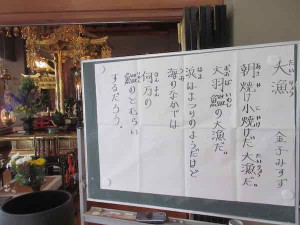 大漁 金子みすゞ
朝焼け小焼けだ大漁だ
大羽鰮の大漁だ。
浜はまつりのようだけど
海のなかでは
何万の
鰮のとむらい
するだろう。